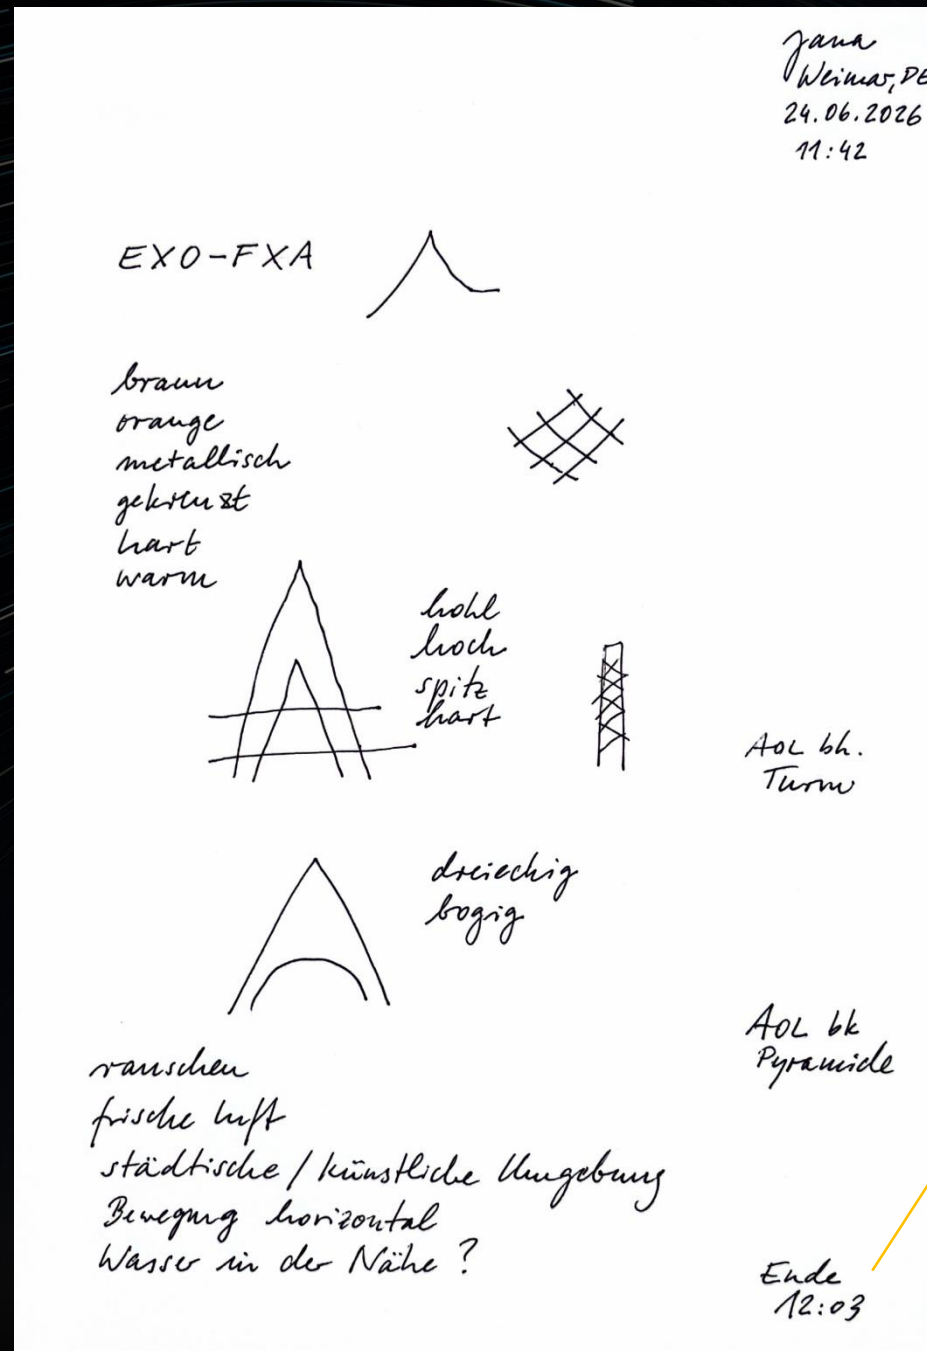 Jana
Weimar, DE
24.06.2026
11:42
EXO-FXA
braun
orange
metallisch
gekreuzt
hart
warm
hohl
hoch
spitz
hart
AOL bk.
Turm
dreieckig
bogig
AOL bk
Pyramide
rauschen
frische Luft
städtische / künstliche Umgebung
Bewegung horizontal
Wasser in der Nähe?
Ende
12:03